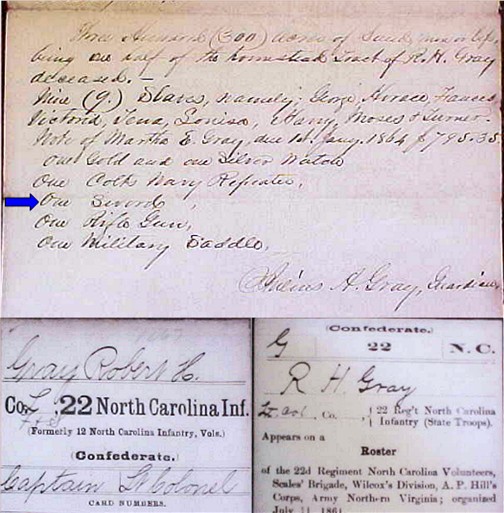 Three Hundred (300) acres of Land, more or less
being one half of the homestead Tract of R. H. Gray
deceased. —
Nine (9.) Slaves, namely; George, Horace, Frances
Victoria, Tena, Louisa, Harry, Moses & Turner.
Note of Martha E. Gray, due 1st Jany. 1864 for 795.35
One Gold and one Silver Watch
One Colts Navy Repeater,
One Sword,
One Rifle Gun,
One Military Saddle,
Julius A. Gray, Guardian
Gray Robert H.
Co. L, 22 North Carolina Inf.
(Formerly 12 North Carolina Infantry, Vols.)
(Confederate.)
Captain Lt Colonel
CARD NUMBERS.
(Confederate.)
G 22 N.C.
R H Gray
Lt. Col, Co. , 22 Reg't North Carolina
Infantry (State Troops).
Appears on a
Roster
of the 22d Regiment North Carolina Volunteers,
Scales' Brigade, Wilcox's Division, A. P. Hill's
Corps, Army Northern Virginia; organized
July 11 1861